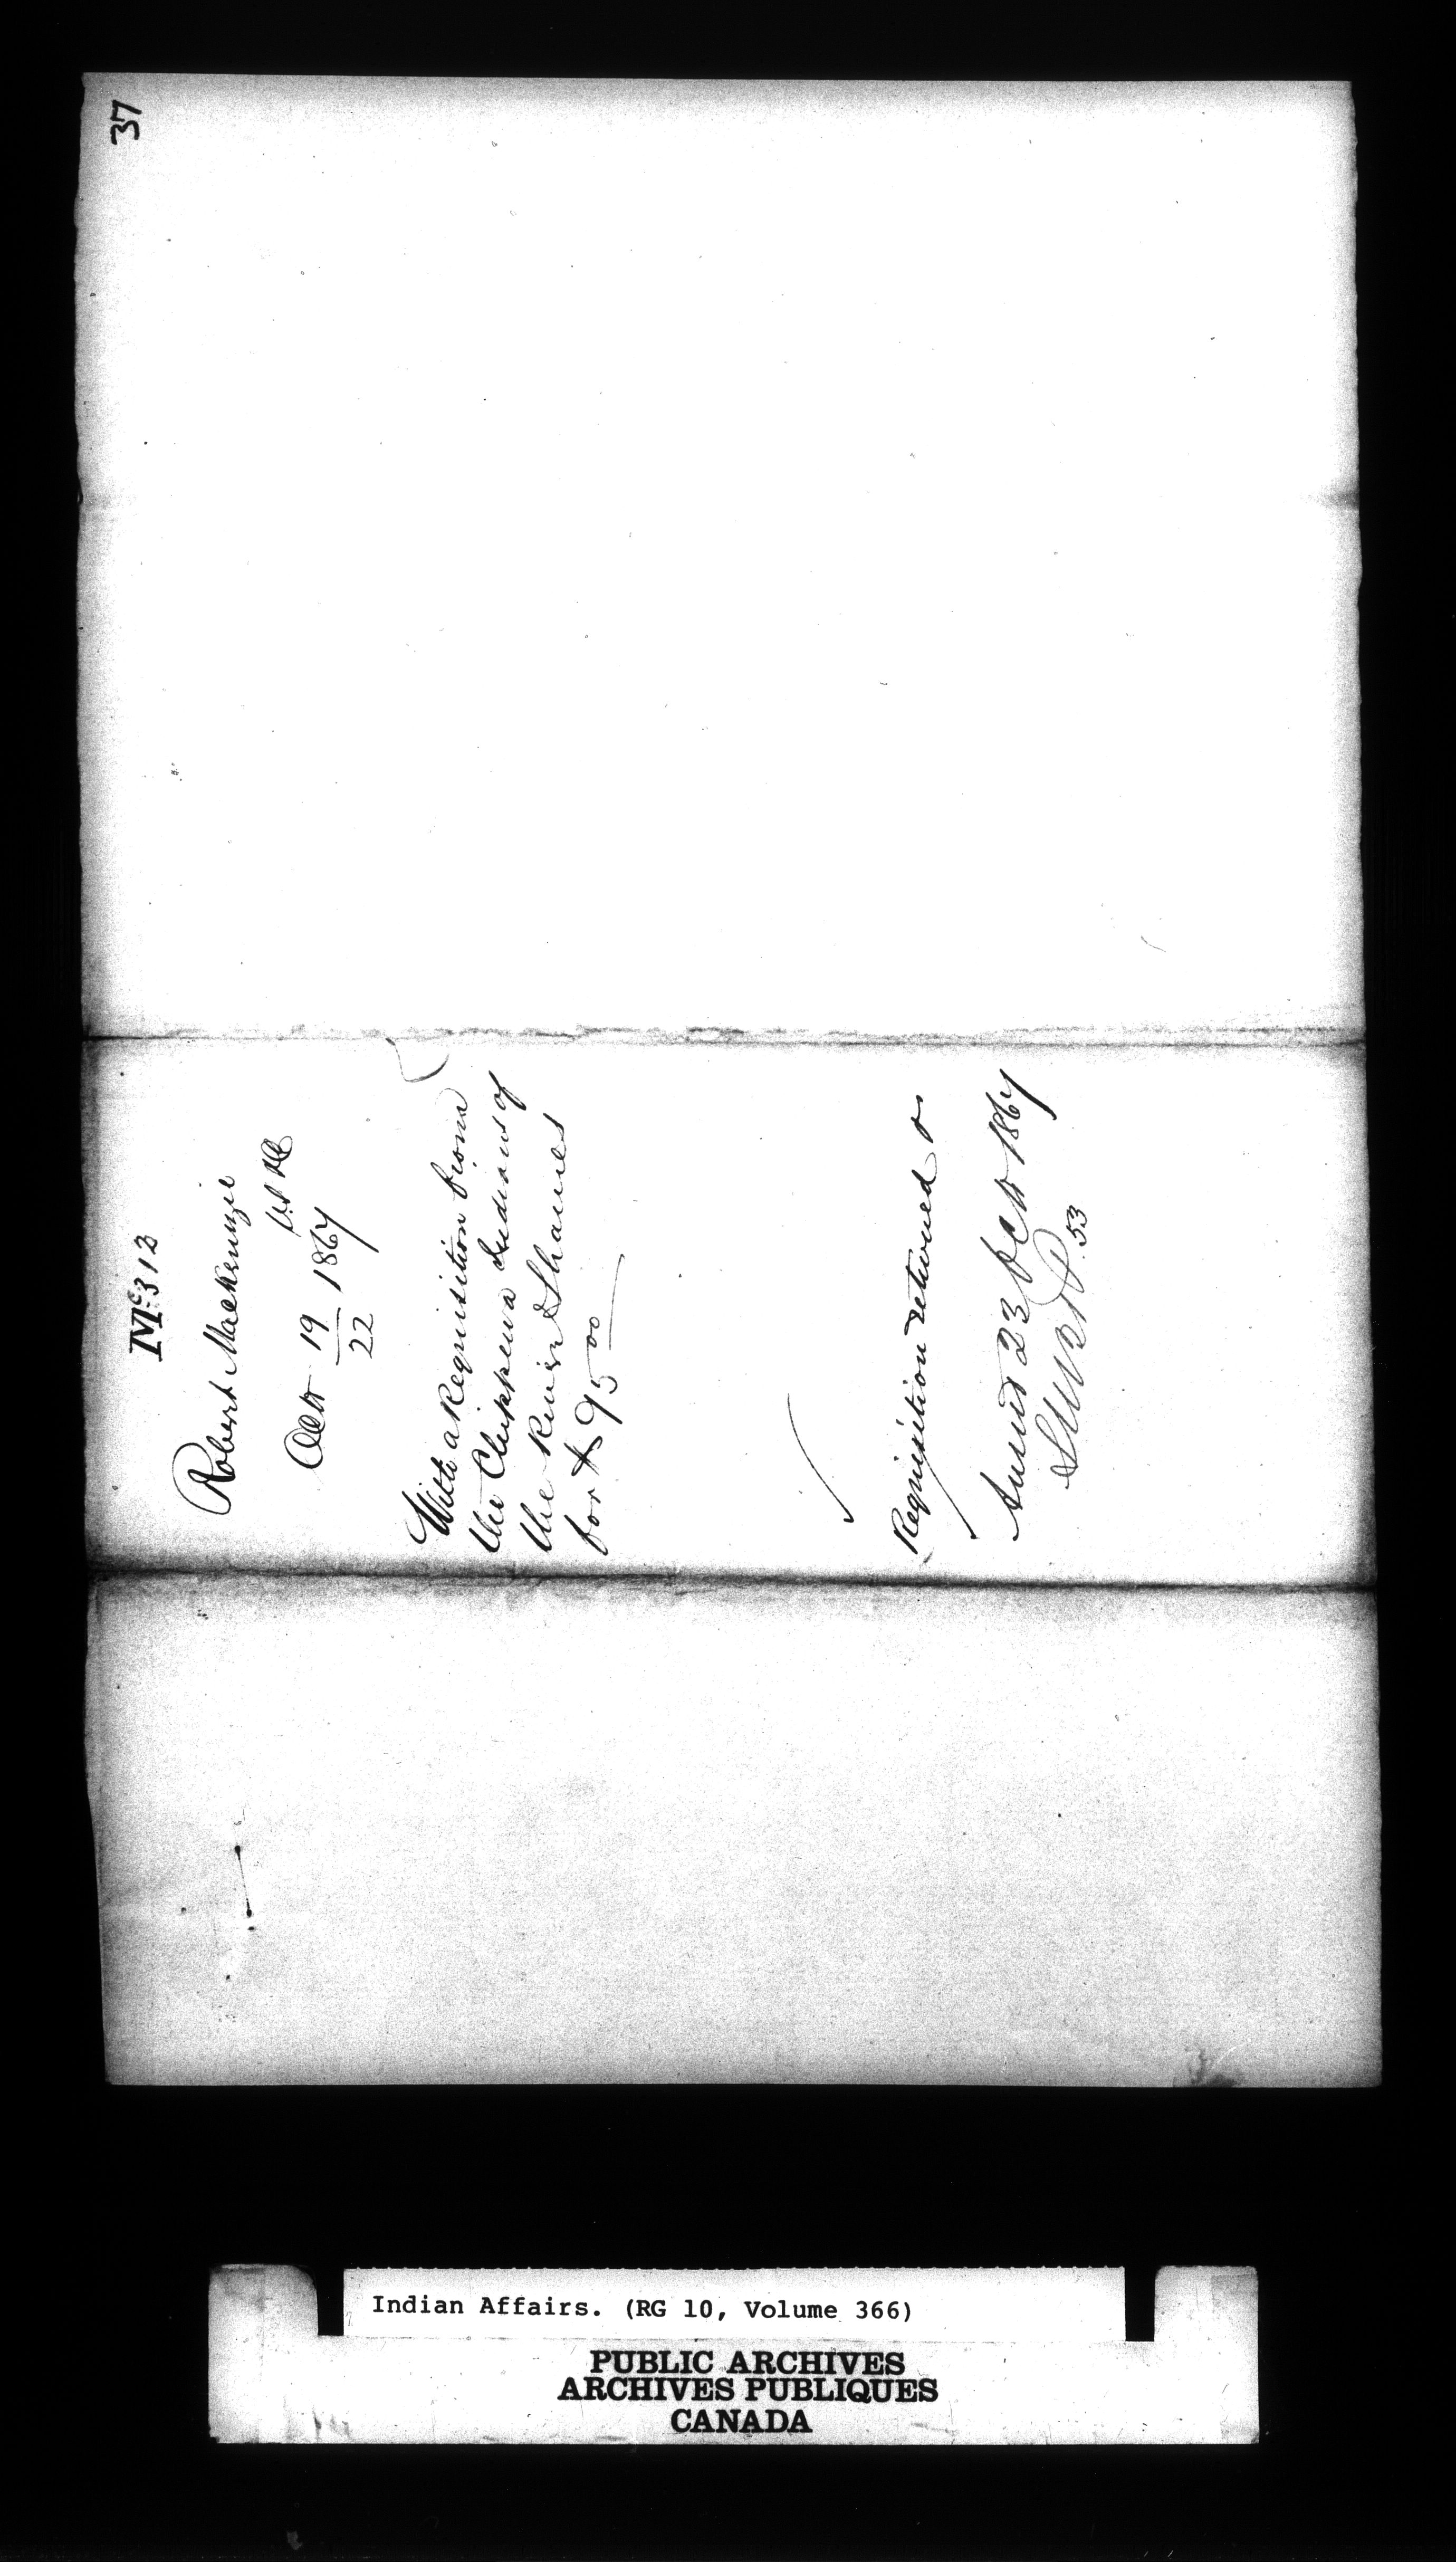 37
Mc:313
Robert Mackenzie
Octr 19 1867
22
With a Requisition from
the Chippewa Indians of
the River Thames
for $95 00
Requisition returned &
Ansd 23 Oct 1867
53
Indian Affairs. (RG 10, Volume 366)
PUBLIC ARCHIVES
ARCHIVES PUBLIQUES
CANADA